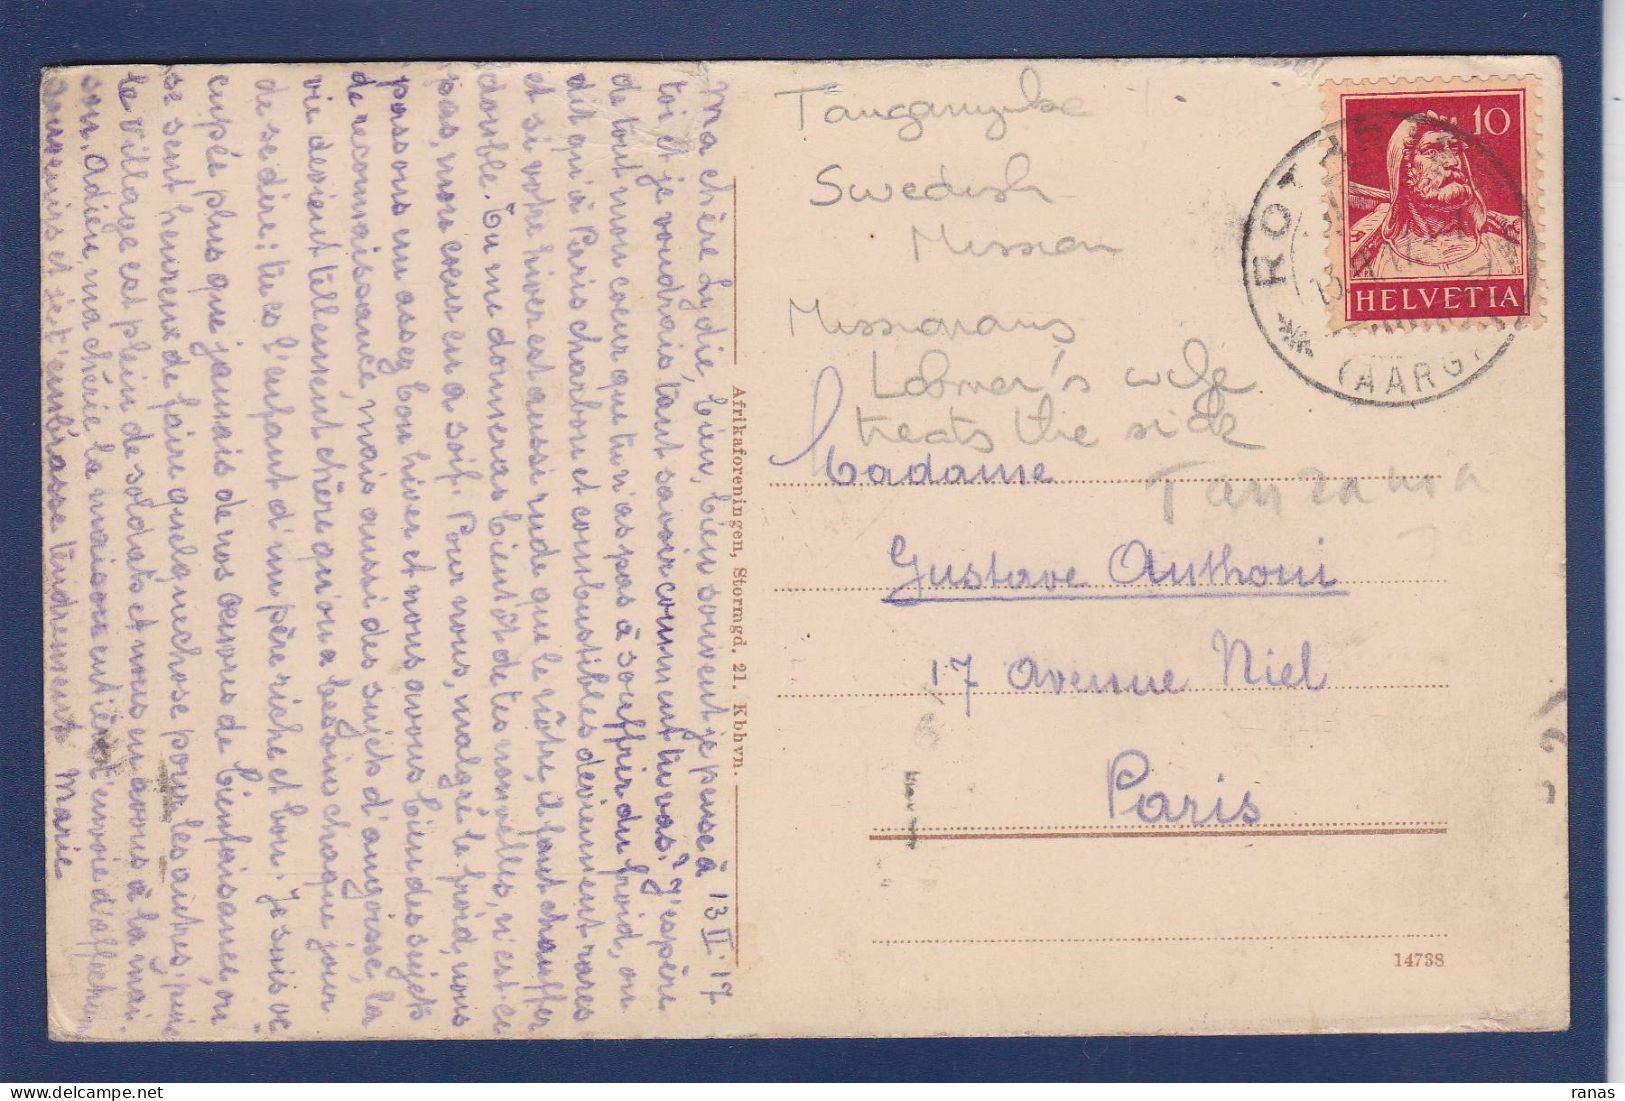 Ma chère Lydie, bien, bien souvent je pense à 13 II. 17
toi et je voudrais tant savoir comment tu vas? J'espère
de tout mon coeur que tu n'as pas à souffrir du froid, on
dit qu'à Paris charbon et combustibles deviennent rares
et si votre hiver est aussi rude que le nôtre, il faut chauffer
double. Tu me donneras bientôt de tes nouvelles, n'est-ce
pas, mon coeur en a soif. Pour nous, malgré le froid, nous
passons un assez bon hiver et nous avons bien des sujets
de reconnaissance, mais aussi des sujets d'angoisse, la
vie devient tellement chère qu'on a besoin chaque jour
de se dire: tu es l'enfant d'un père riche et bon. Je suis oc-
cupée plus que jamais de nos œuvres de bienfaisance, on
se sent heureux de faire quelque chose pour les autres, puis
le village est plein de soldats et nous en avons à la mai-
son. Adieu, ma chérie la maison entière t'envoie d'affectueux
souvenirs et je t'embrasse tendrement Marie
Afrikaforeningen, Stormgd. 21. Kbhvn.
Tanganyika
Swedish
Mission
Missionary
Lobner's wife
treats the sick
Tanzania
10
HELVETIA
ROTHR
(AARG)
Madame
Gustave Anthoni
17 Avenue Niel
Paris
14738
ranas